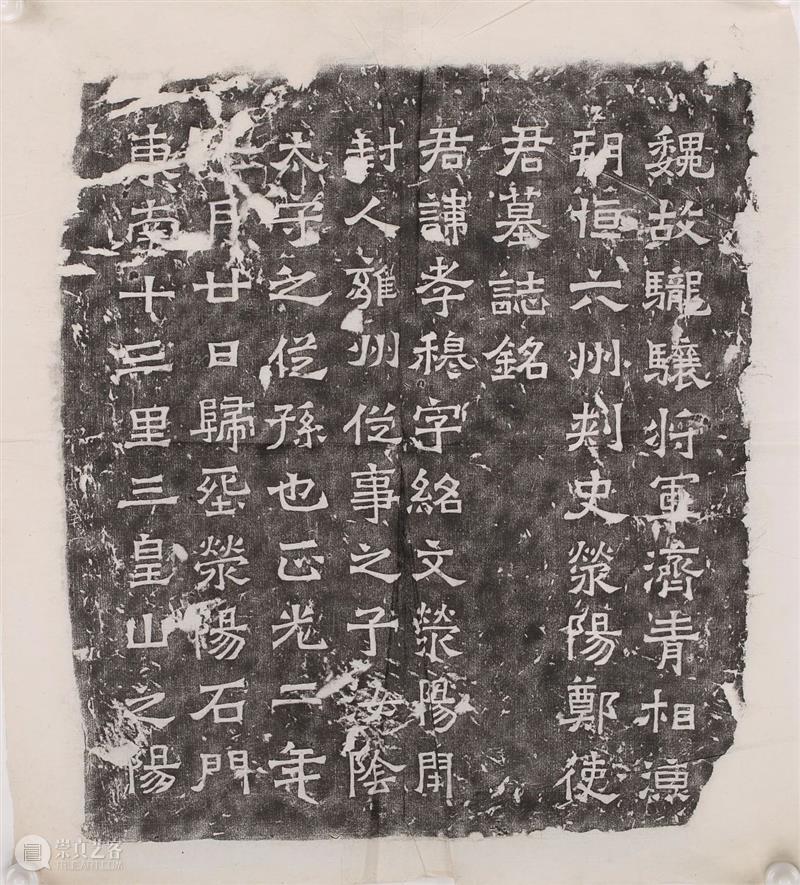 魏故䮾驤将軍濟青相涼
朔恒六州刾史滎陽鄭使
君墓誌銘
君諱孝穆字紹文滎陽開
封人雍州従事之子汝陰
太守之従孫也正光二年
月廿日歸滎陽石門
東南十里三皇山之陽
崇真艺客
TRUEART.COM